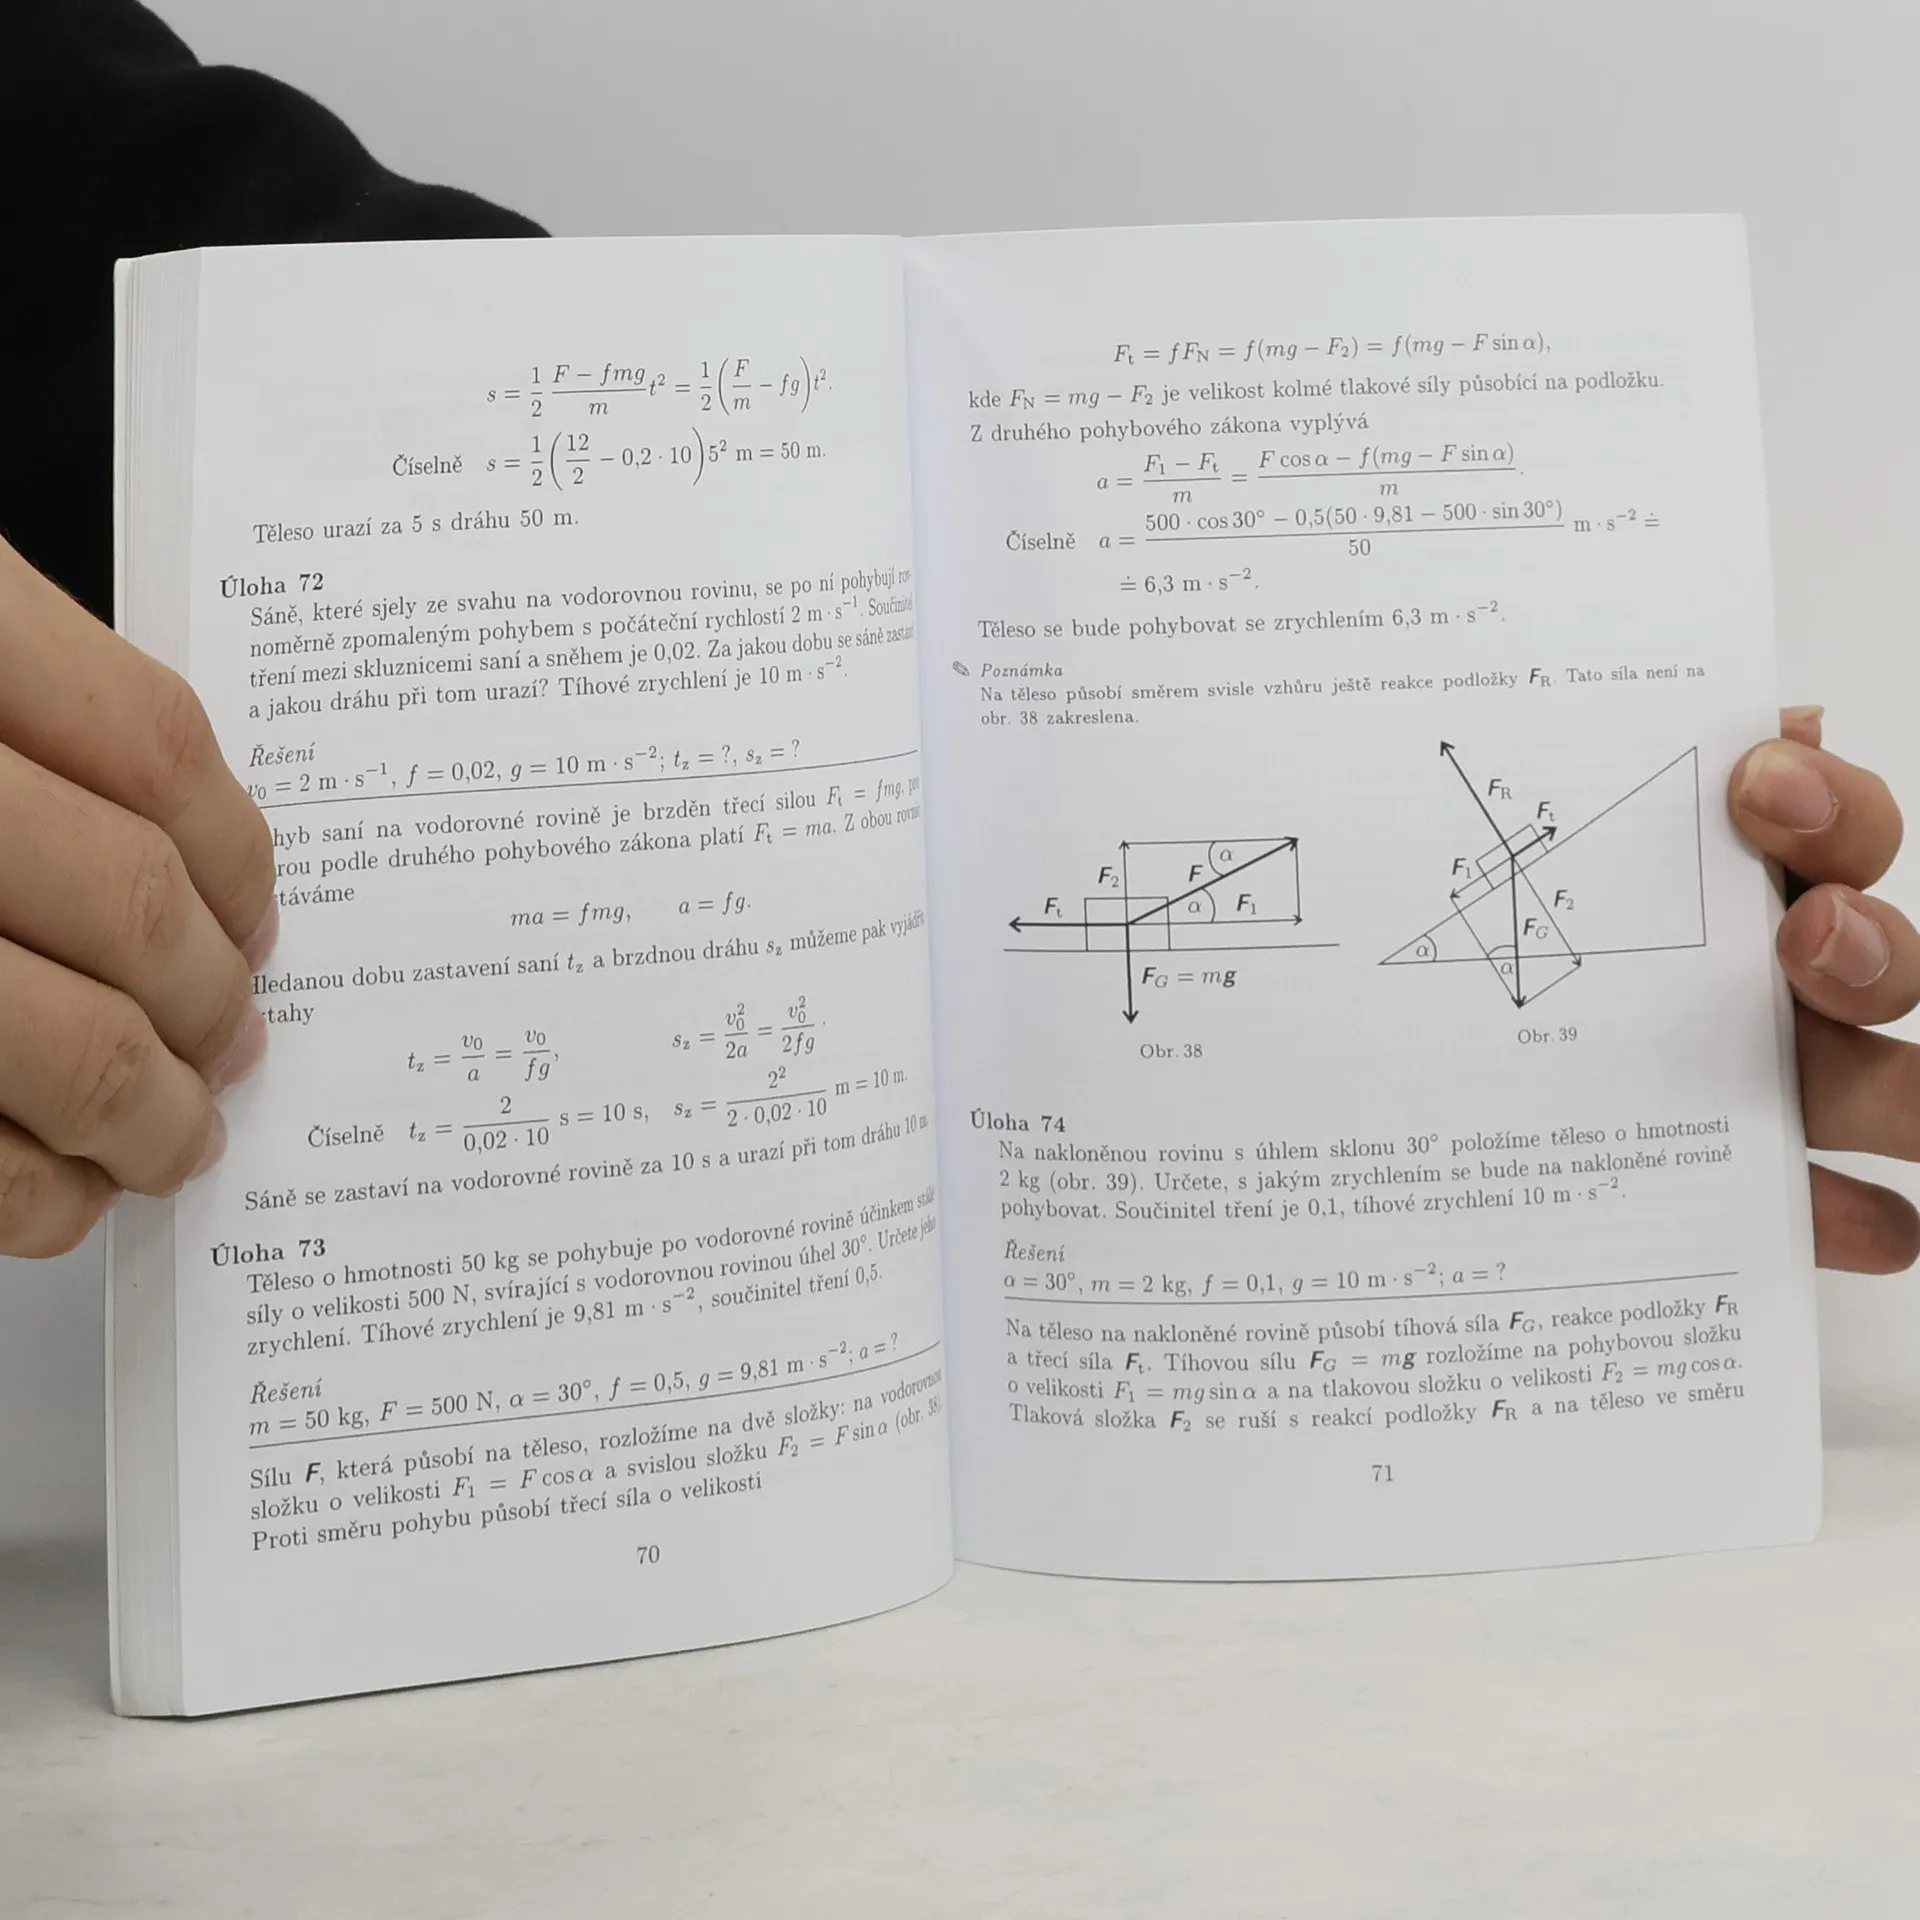 s = \frac{1}{2} \frac{F - fmg}{m} t^2 = \frac{1}{2} \left( \frac{F}{m} - fg \right) t^2.
Číselně s = \frac{1}{2} \left( \frac{12}{2} - 0,2 · 10 \right) 5^2 m = 50 m.
Těleso urazí za 5 s dráhu 50 m.
Úloha 72
Sáně, které sjely ze svahu na vodorovnou rovinu, se po ní pohybují rov-
noměrně zpomaleným pohybem s počáteční rychlostí 2 m · s⁻¹. Součinitel
tření mezi skluznicemi saní a sněhem je 0,02. Za jakou dobu se sáně zastaví
a jakou dráhu při tom urazí? Tíhové zrychlení je 10 m · s⁻².
Řešení
v₀ = 2 m · s⁻¹, f = 0,02, g = 10 m · s⁻²; t_z = ?, s_z = ?
hyb saní na vodorovné rovině je brzděn třecí silou F_t = fmg,
rou podle druhého pohybového zákona platí F_t = ma. Z obou rovnic
táváme
ma = fmg, a = fg.
Hledanou dobu zastavení saní t_z a brzdnou dráhu s_z můžeme pak vyjádřit
tahy
t_z = \frac{v_0}{a} = \frac{v_0}{fg}, s_z = \frac{v_0^2}{2a} = \frac{v_0^2}{2fg}.
Číselně t_z = \frac{2}{0,02 · 10} s = 10 s, s_z = \frac{2^2}{2 · 0,02 · 10} m = 10 m.
Sáně se zastaví na vodorovné rovině za 10 s a urazí při tom dráhu 10 m
Úloha 73
Těleso o hmotnosti 50 kg se pohybuje po vodorovné rovině účinkem stálé
síly o velikosti 500 N, svírající s vodorovnou rovinou úhel 30°. Určete jeho
zrychlení. Tíhové zrychlení je 9,81 m · s⁻², součinitel tření 0,5.
Řešení
m = 50 kg, F = 500 N, α = 30°, f = 0,5, g = 9,81 m · s⁻²; a = ?
Sílu F, která působí na těleso, rozložíme na dvě složky: na vodorovnou
složku o velikosti F₁ = F cos α a svislou složku F₂ = F sin α (obr. 38).
Proti směru pohybu působí třecí síla o velikosti
70
F_t = fF_N = f(mg − F₂) = f(mg − F sin α),
kde F_N = mg − F₂ je velikost kolmé tlakové síly působící na podložku.
Z druhého pohybového zákona vyplývá
a = \frac{F_1 - F_t}{m} = \frac{F cos α - f(mg - F sin α)}{m}.
Číselně a = \frac{500 · cos 30° - 0,5(50 · 9,81 - 500 · sin 30°)}{50} m · s⁻² ≐
≐ 6,3 m · s⁻².
Těleso se bude pohybovat se zrychlením 6,3 m · s⁻².
✎ Poznámka
Na těleso působí směrem svisle vzhůru ještě reakce podložky F_R. Tato síla není na
obr. 38 zakreslena.
F_t F₂ F α α F₁
F_G = mg
Obr. 38
F_R F_t F₁ F₂ F_G α α
Obr. 39
Úloha 74
Na nakloněnou rovinu s úhlem sklonu 30° položíme těleso o hmotnosti
2 kg (obr. 39). Určete, s jakým zrychlením se bude na nakloněné rovině
pohybovat. Součinitel tření je 0,1, tíhové zrychlení 10 m · s⁻².
Řešení
α = 30°, m = 2 kg, f = 0,1, g = 10 m · s⁻²; a = ?
Na těleso na nakloněné rovině působí tíhová síla F_G, reakce podložky F_R
a třecí síla F_t. Tíhovou sílu F_G = mg rozložíme na pohybovou složku
o velikosti F₁ = mg sin α a na tlakovou složku o velikosti F₂ = mg cos α.
Tlaková složka F₂ se ruší s reakcí podložky F_R a na těleso ve směru
71